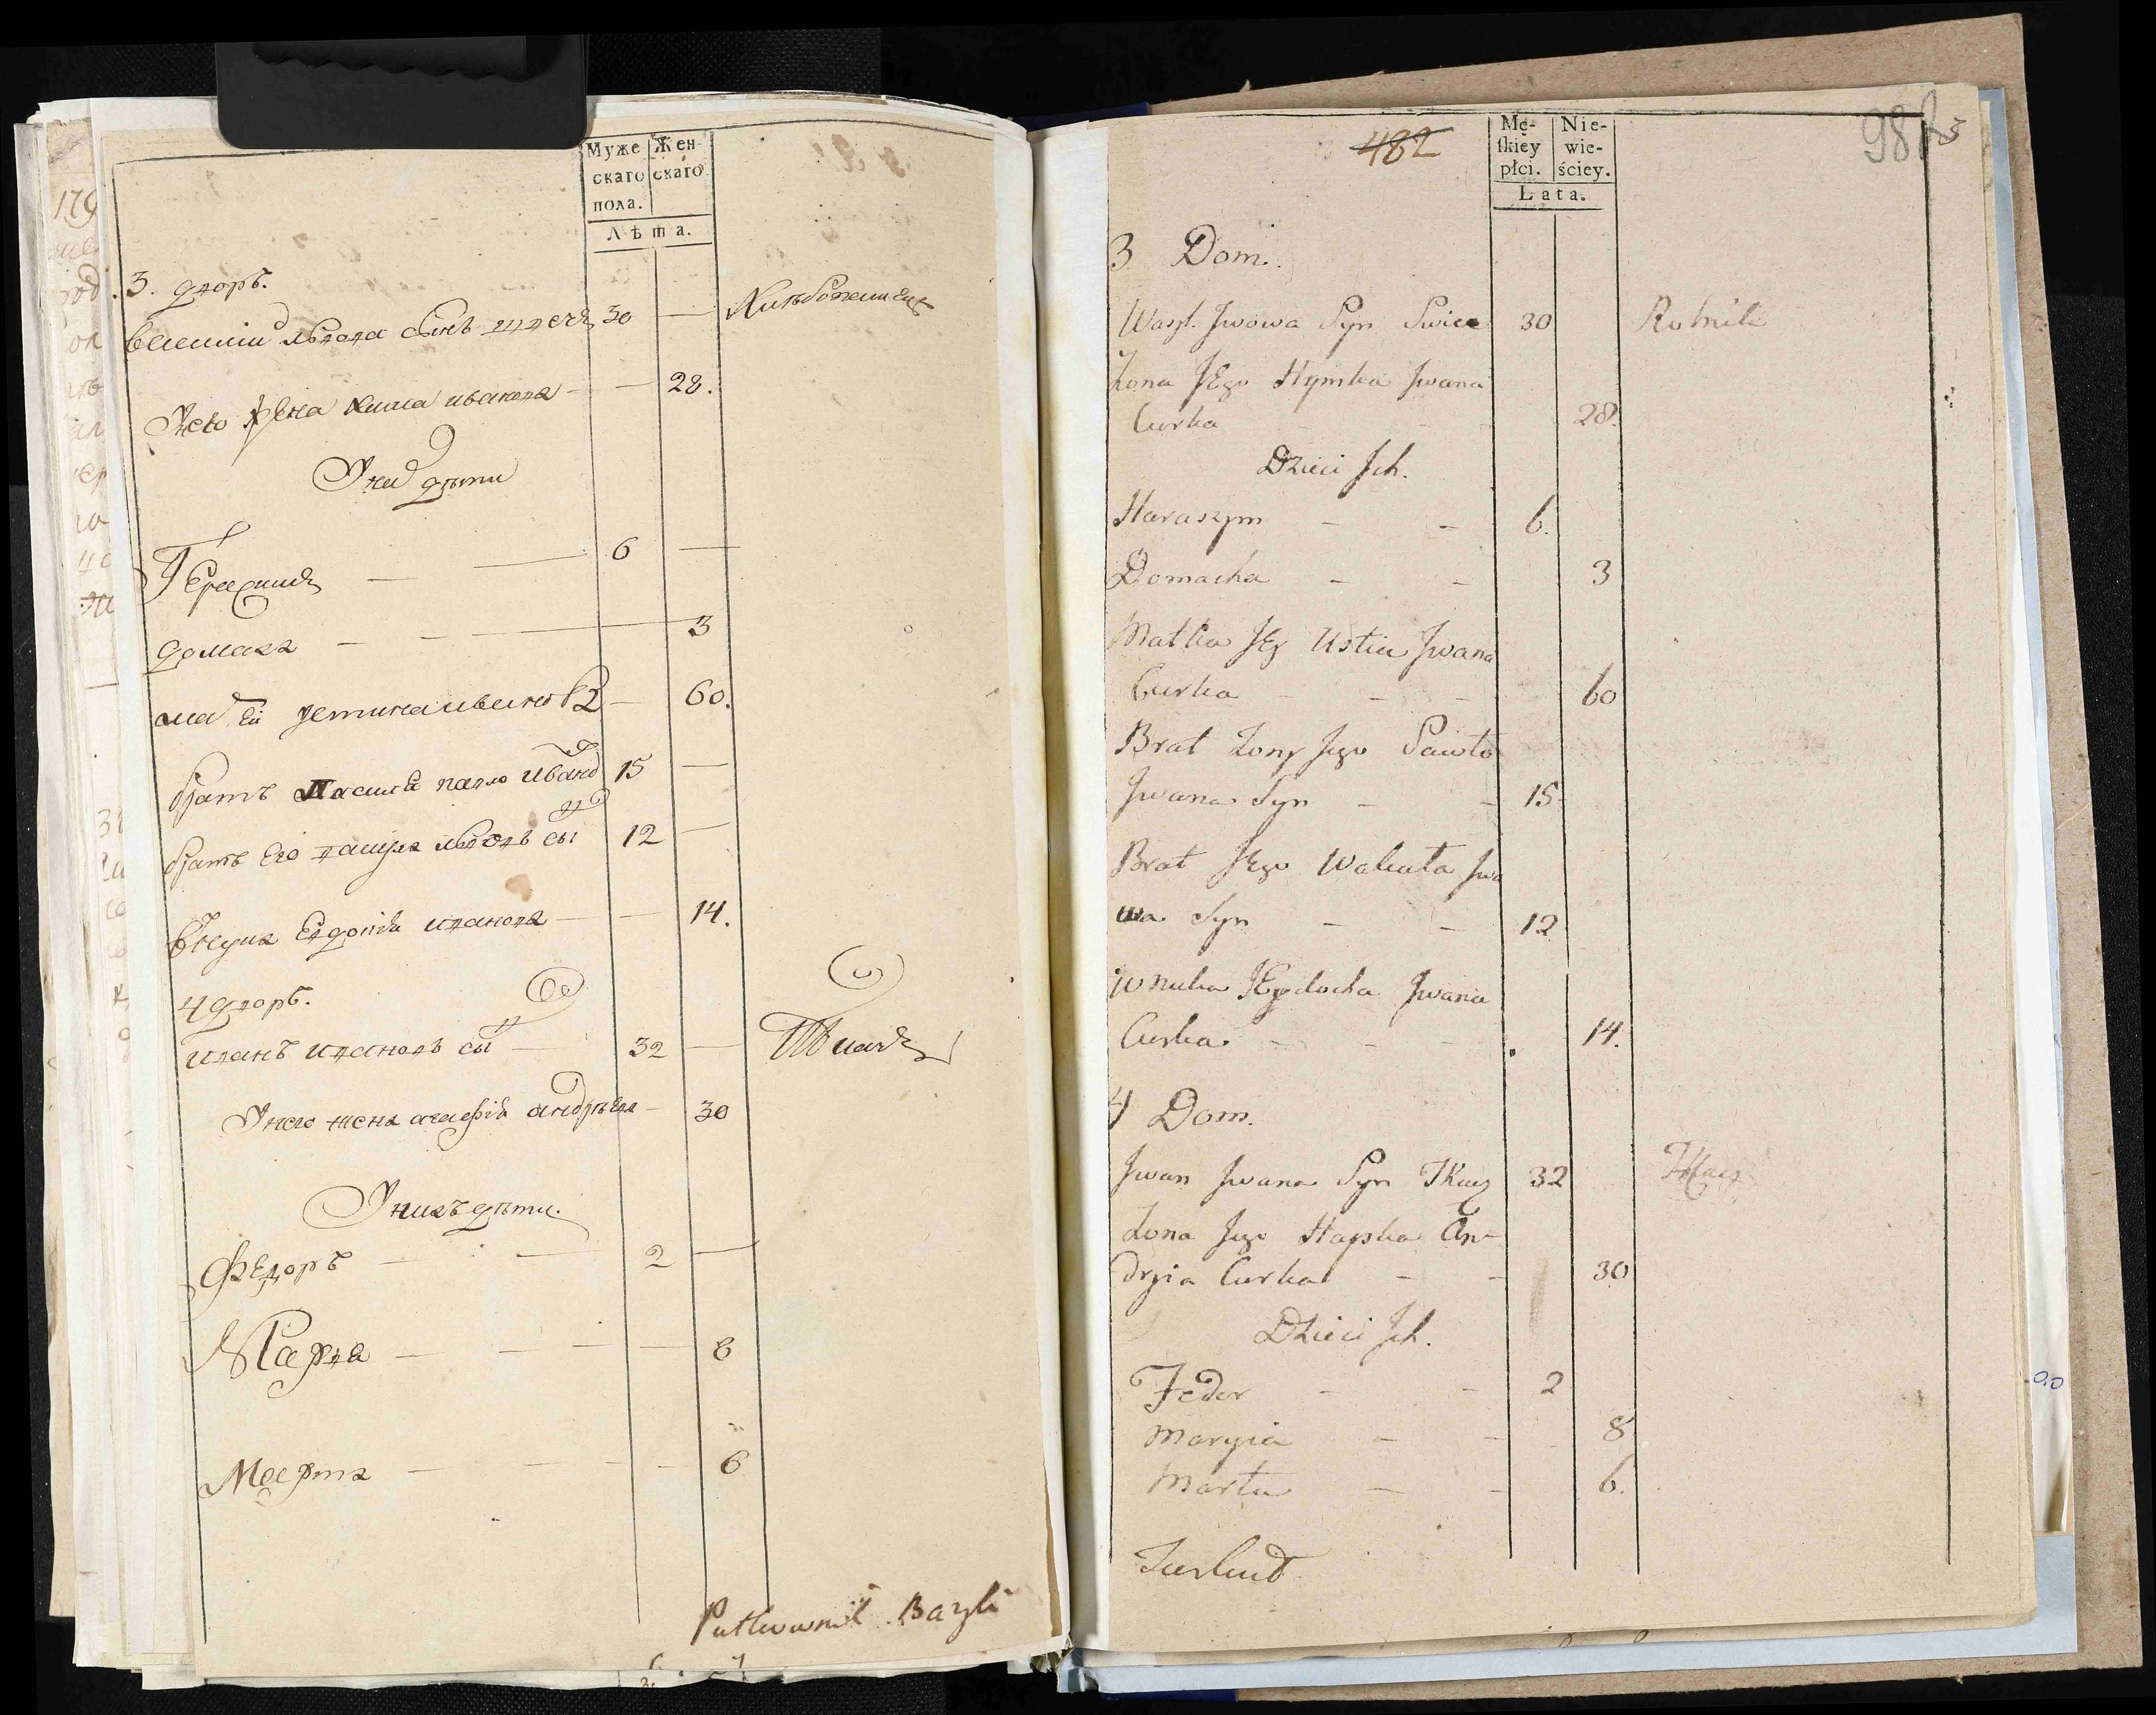 Муже
скаго
пола.
Жен-
скаго
Лѣта.
3. дворъ.
василий львова сынъ швецъ 30 —
Хлѣбопашецъ
У нево жена химка иванова — — 28.
У них дѣти
Герасимъ — — 6 —
домаха — — — 3
мат еи устина иванова — 60.
братъ василя павло иванов 15 —
братъ его вакула львовъ сы 12 —
внука евдокия иванова — — 14.
4 дворъ.
иванъ ивановъ сы — 32 —
Ткачъ
У него жена агафия андрѣева — 30
У нихъ дѣти.
Федоръ — — — 2 —
Марва — — — — 8
Марта — — — — 6
Bazyli
482
983
Mę-
ſkiey
płci.
Nie-
wie-
ściey.
Lata.
3 Dom.
Wasyl Jwowa Syn Swiec 30 Rolnik
Żona JEgo Hymka Jwana
Curka - - 28.
Dzieci Jch.
Haraszym - - 6.
Domacha - - 3
Matka JEg Ustia Jwana
Curka - - - 60
Brat Żony Jego Pawło
Jwana Syn - - 15
Brat JEgo Wakuła Jwo
wa Syn - - 12
Wnuka JEwdocha Jwana
Curka - - - 14.
4 Dom.
Jwan Jwana Syn Tkacz 32 Tkacz
Żona Jego Hapka An-
dryia Curka - - 30
Dzieci Jch.
Fedor - - 2
Maryia - - 8
Marta - - 6.